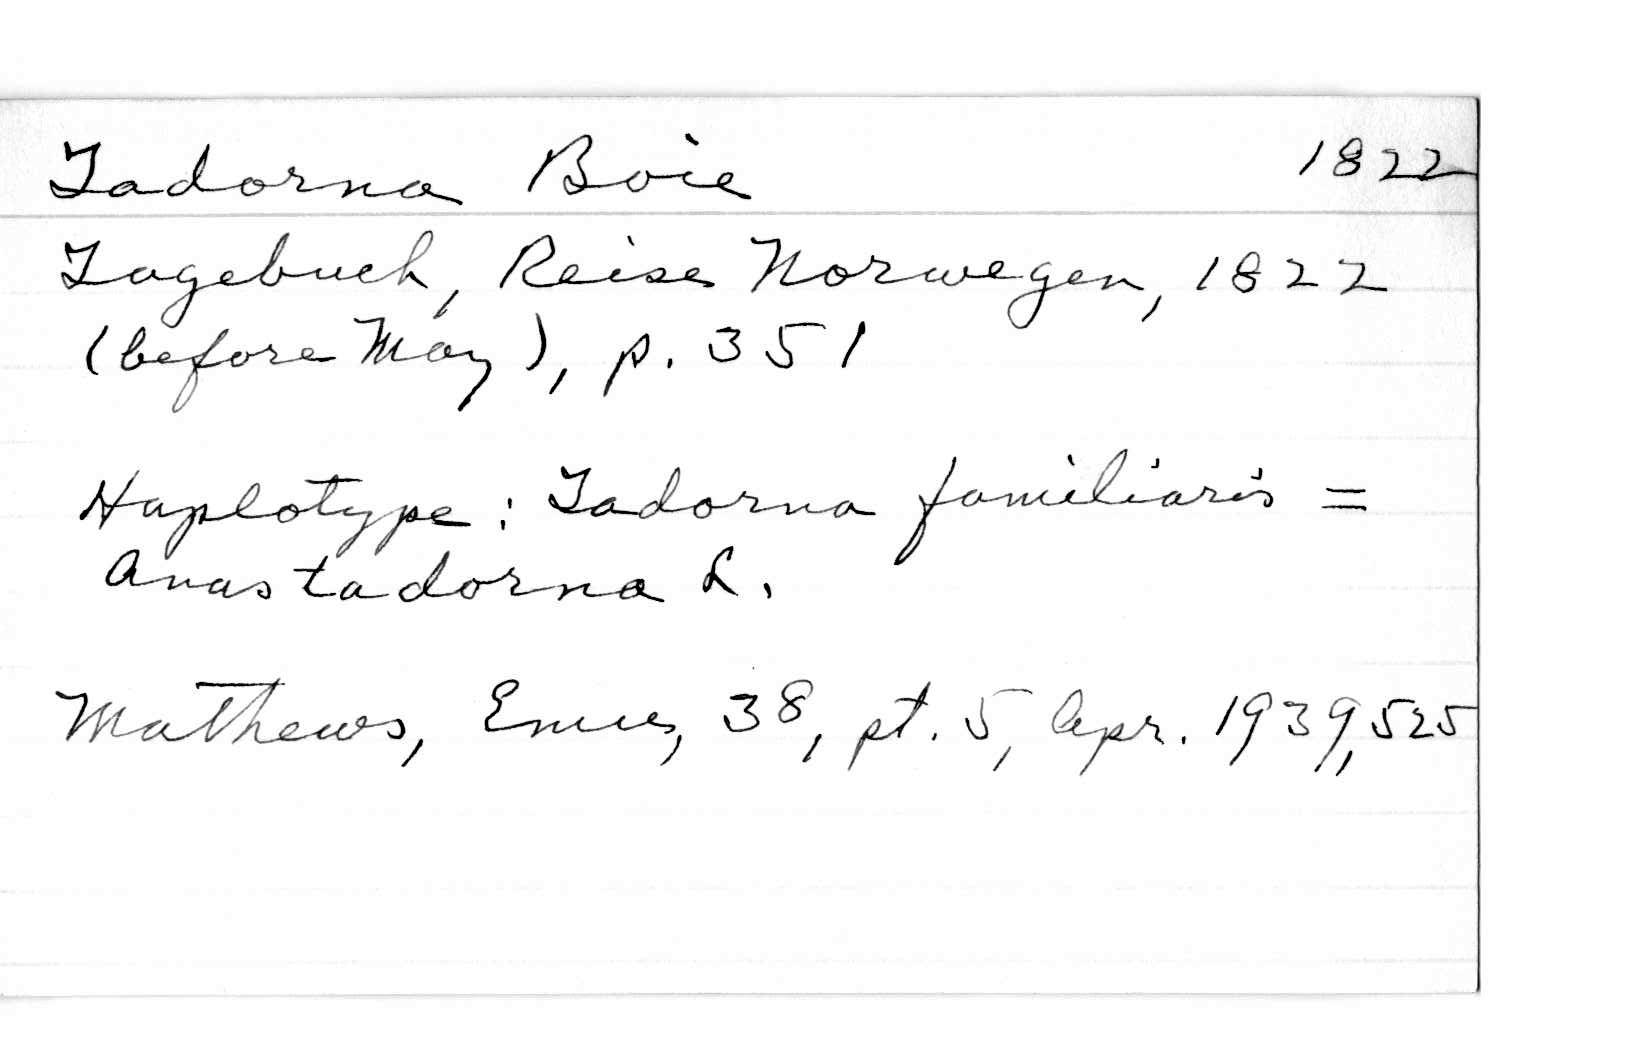 Tadorna Boie 1822
Tagebuch, Reise Norwegen, 1822
(before May), p. 351
Haplotype: Tadorna familiaris =
Anas tadorna L.
Mathews, Emu, 38, pt. 5, Apr. 1939, 525